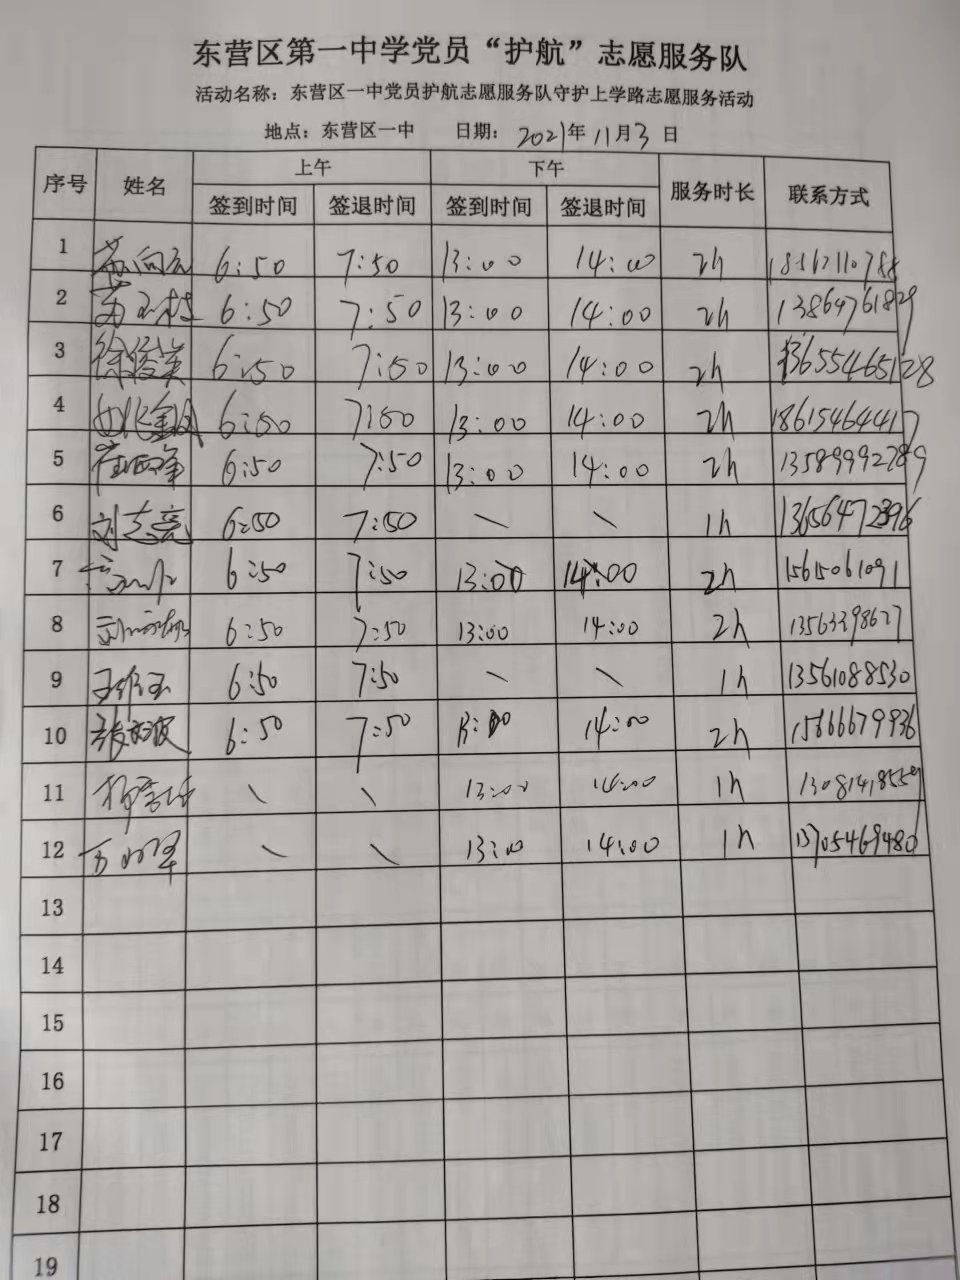 东营区第一中学党员“护航”志愿服务队
活动名称：东营区一中党员护航志愿服务队守护上学路志愿服务活动
地点：东营区一中 日期：2021年11月3日
序号 姓名 上午 下午 服务时长 联系方式
签到时间 签退时间 签到时间 签退时间
1 6:50 7:50 13:00 14:00 2h
2 6:50 7:50 13:00 14:00 2h 13864761829
3 徐俊英 6:50 7:50 13:00 14:00 2h 13655465128
4 6:50 7:50 13:00 14:00 2h 18615464417
5 6:50 7:50 13:00 14:00 2h 13589992789
6 刘志亮 6:50 7:50 \ \ 1h 13656472396
7 6:50 7:50 13:00 14:00 2h 15615061091
8 6:50 7:50 13:00 14:00 2h 13563398627
9 6:50 7:50 \ \ 1h 13561088530
10 6:50 7:50 13:00 14:00 2h 15866679936
11 \ \ 13:00 14:00 1h
12 \ \ 13:00 14:00 1h 13705469480
13
14
15
16
17
18
19